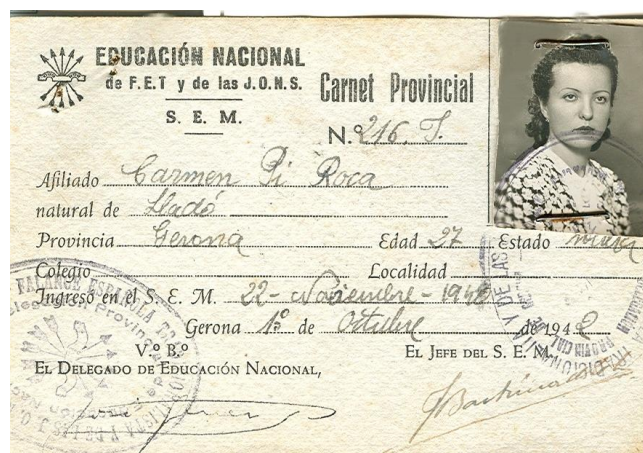 EDUCACIÓN NACIONAL
de F.E.T y de las J.O.N.S.
S. E. M.
Carnet Provincial
N.º 216. T.
Afiliado Carmen Pi Roca
natural de Lladó
Provincia Gerona Edad 27 Estado
Colegio Localidad
Ingreso en el S. E. M. 22-Noviembre-1940
Gerona 1º de Octubre de 1942
V.º B.º
EL DELEGADO DE EDUCACIÓN NACIONAL,
EL JEFE DEL S. E. M.,
FALANGE ESPAÑOLA
Y DE LAS